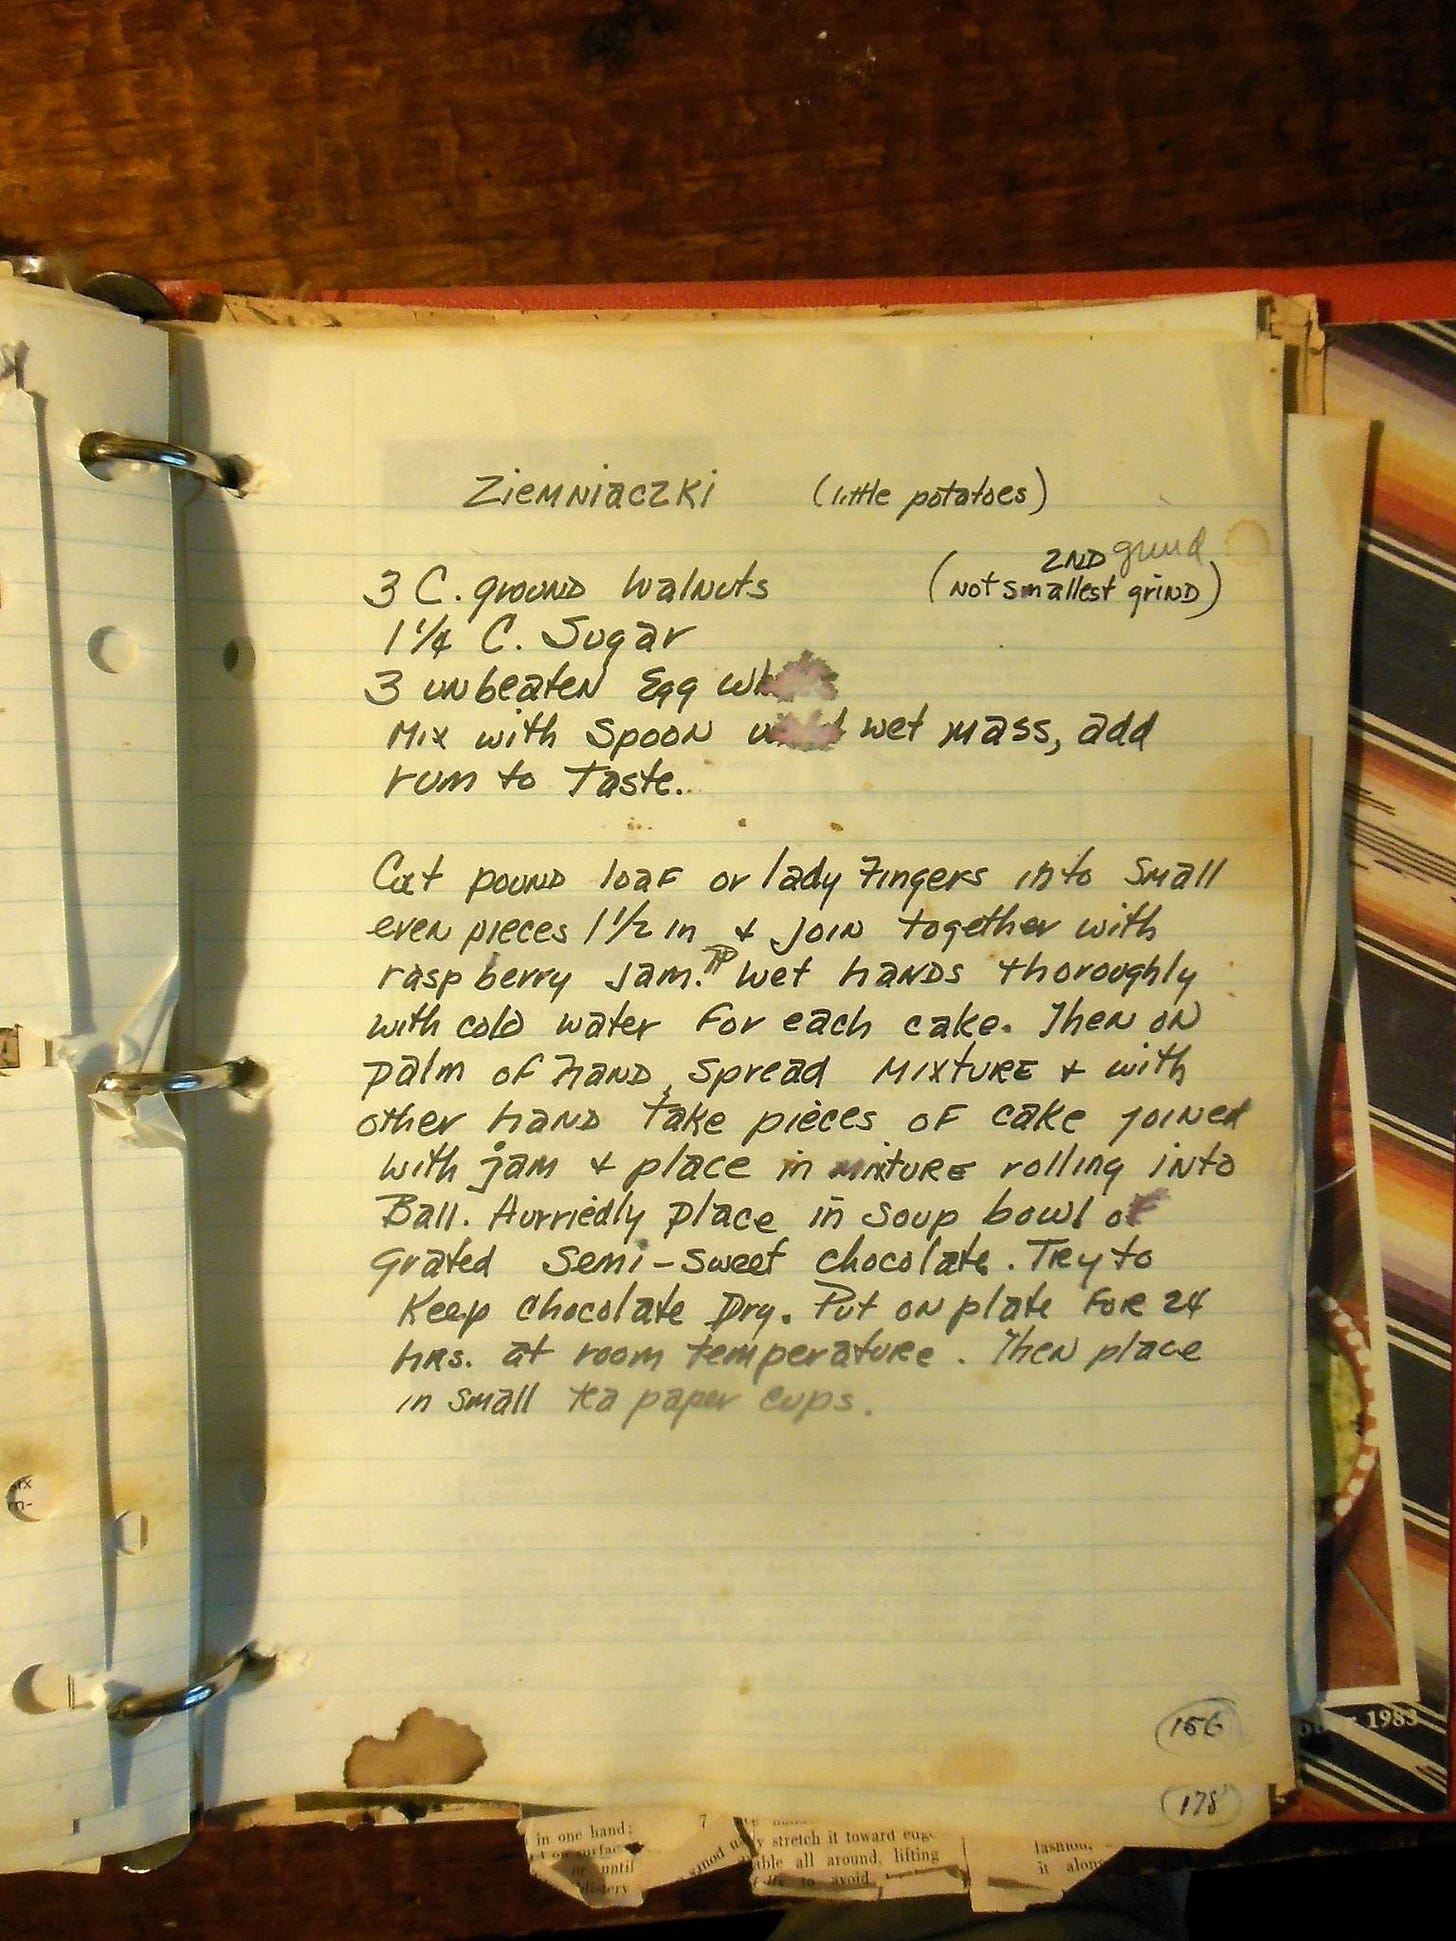 Ziemniaczki (little potatoes)
2ND grind
3 C. ground walnuts (not smallest grind)
1 1/4 C. Sugar
3 unbeaten Egg
Mix with spoon wet mass, add
rum to taste.
Cut pound loaf or lady fingers into small
even pieces 1 1/2 in & join together with
raspberry jam. wet hands thoroughly
with cold water for each cake. Then on
palm of hand, spread mixture & with
other hand take pieces of cake joined
with jam & place in mixture rolling into
Ball. Hurriedly place in soup bowl of
grated semi-sweet chocolate. Try to
keep chocolate Dry. Put on plate for 24
hrs. at room temperature. Then place
in small tea paper cups.
156
1983
178
in one hand;
7
stretch it toward
until
all around, lifting
to avoid
fashion,
it